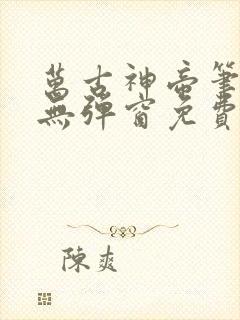 萬古神帝筆
無彈窗免費
陳爽